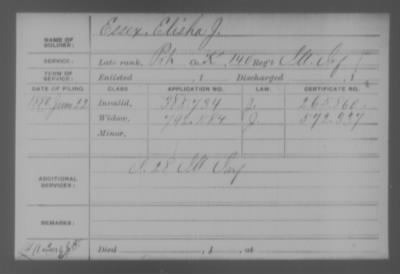 NAME OF SOLDIER: Essex, Elisha J.
SERVICE: Late rank, Pvt Co. K, 140 Reg't Ill. Inf
TERM OF SERVICE: Enlisted , 1 Discharged , 1
DATE OF FILING. CLASS. APPLICATION NO. LAW. CERTIFICATE NO.
1880 June 22 Invalid, 388,734 J. 265,860
Widow, 792,184 J. 572,937
Minor,
ADDITIONAL SERVICES: I, 28 Ill. Inf
REMARKS:
Died , 1 , at